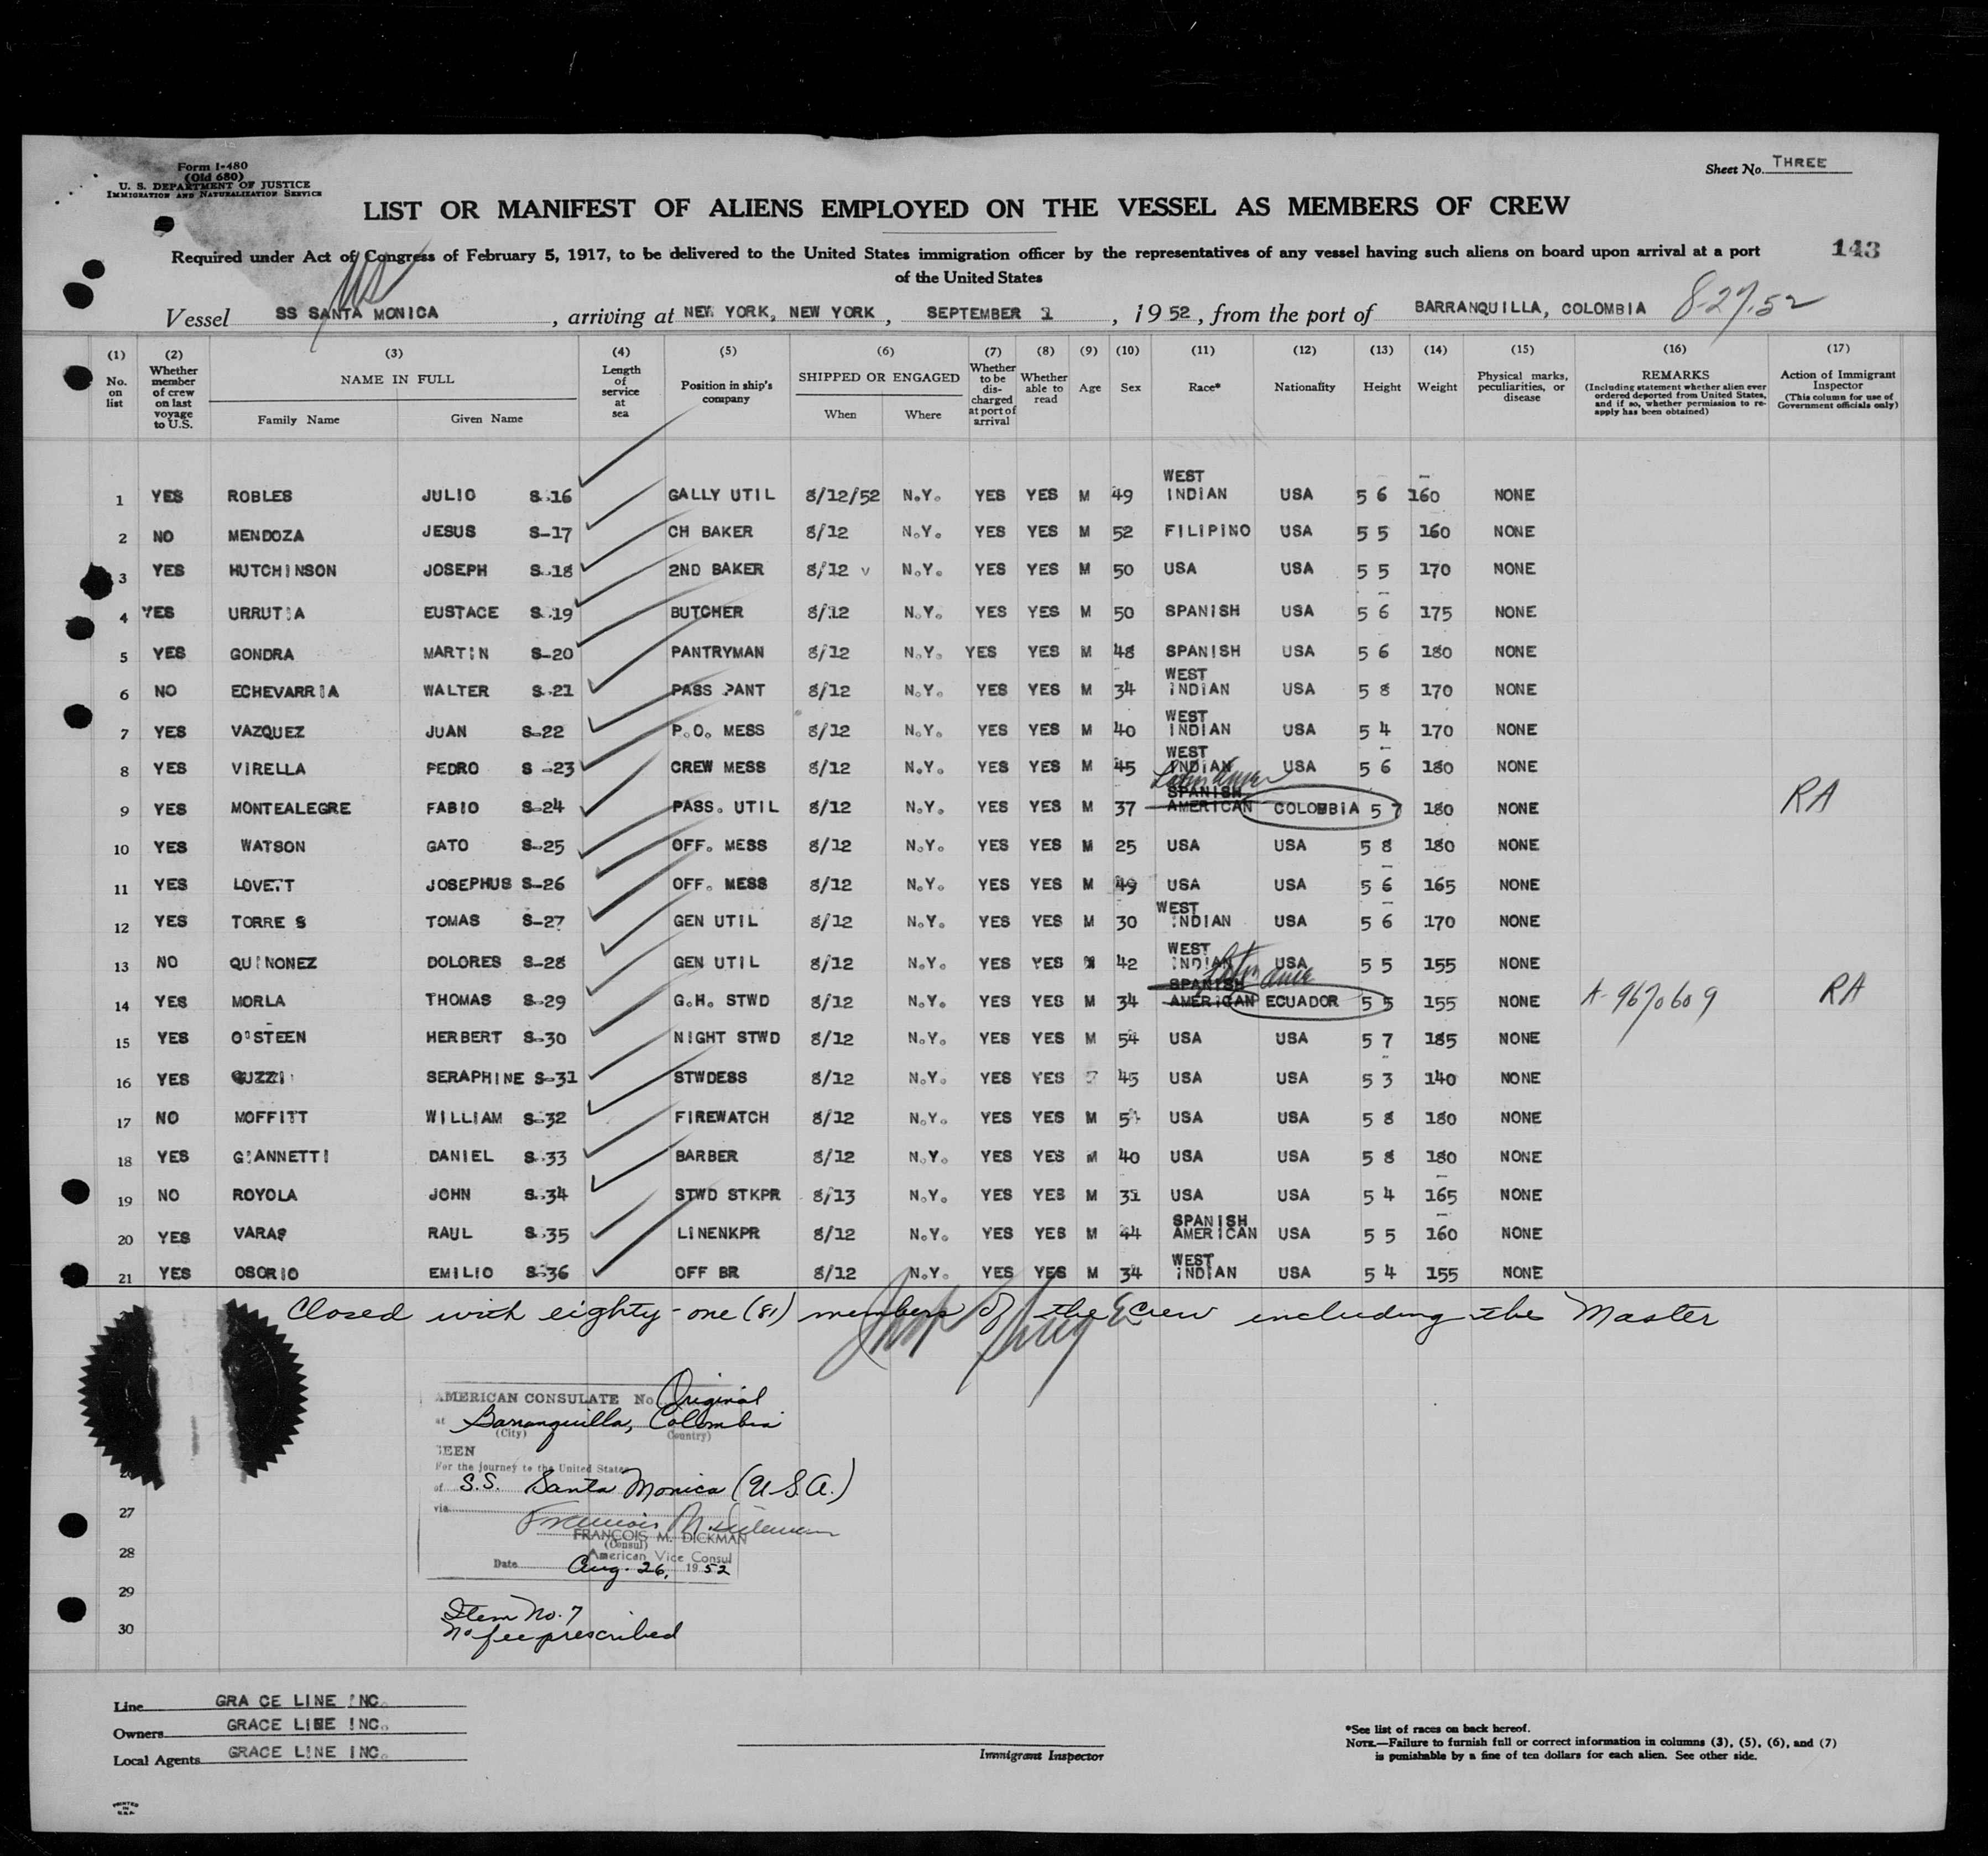 Form I-480
(Old 680)
U. S. DEPARTMENT OF JUSTICE
IMMIGRATION AND NATURALIZATION SERVICE
Sheet No. THREE
LIST OR MANIFEST OF ALIENS EMPLOYED ON THE VESSEL AS MEMBERS OF CREW
Required under Act of Congress of February 5, 1917, to be delivered to the United States immigration officer by the representatives of any vessel having such aliens on board upon arrival at a port
of the United States
143
Vessel SS SANTA MONICA, arriving at NEW YORK, NEW YORK, SEPTEMBER 1, 1952, from the port of BARRANQUILLA, COLOMBIA 8-27-52
(1) (2) (3) (4) (5) (6) (7) (8) (9) (10) (11) (12) (13) (14) (15) (16) (17)
No. on list
Whether member of crew on last voyage to U.S.
NAME IN FULL
Family Name Given Name
Length of service at sea
Position in ship's company
SHIPPED OR ENGAGED
When Where
Whether to be discharged at port of arrival
Whether able to read
Age
Sex
Race*
Nationality
Height
Weight
Physical marks, peculiarities, or disease
REMARKS
(Including statement whether alien ever ordered deported from United States, and if so, whether permission to reapply has been obtained)
Action of Immigrant Inspector
(This column for use of Government officials only)
1 YES ROBLES JULIO S-16 GALLY UTIL 8/12/52 N.Y. YES YES M 49 WEST INDIAN USA 5 6 160 NONE
2 NO MENDOZA JESUS S-17 CH BAKER 8/12 N.Y. YES YES M 52 FILIPINO USA 5 5 160 NONE
3 YES HUTCHINSON JOSEPH S-18 2ND BAKER 8/12 N.Y. YES YES M 50 USA USA 5 5 170 NONE
4 YES URRUTIA EUSTACE S-19 BUTCHER 8/12 N.Y. YES YES M 50 SPANISH USA 5 6 175 NONE
5 YES GONDRA MARTIN S-20 PANTRYMAN 8/12 N.Y. YES YES M 48 SPANISH USA 5 6 180 NONE
6 NO ECHEVARRIA WALTER S-21 PASS PANT 8/12 N.Y. YES YES M 34 WEST INDIAN USA 5 8 170 NONE
7 YES VAZQUEZ JUAN S-22 P.O. MESS 8/12 N.Y. YES YES M 40 WEST INDIAN USA 5 4 170 NONE
8 YES VIRELLA PEDRO S-23 CREW MESS 8/12 N.Y. YES YES M 45 WEST INDIAN USA 5 6 180 NONE
9 YES MONTEALEGRE FABIO S-24 PASS. UTIL 8/12 N.Y. YES YES M 37 Latin Amer SPANISH AMERICAN COLOMBIA 5 7 180 NONE RA
10 YES WATSON GATO S-25 OFF. MESS 8/12 N.Y. YES YES M 25 USA USA 5 8 180 NONE
11 YES LOVETT JOSEPHUS S-26 OFF. MESS 8/12 N.Y. YES YES M 49 USA USA 5 6 165 NONE
12 YES TORRE S TOMAS S-27 GEN UTIL 8/12 N.Y. YES YES M 30 WEST INDIAN USA 5 6 170 NONE
13 NO QUINONEZ DOLORES S-28 GEN UTIL 8/12 N.Y. YES YES M 42 WEST INDIAN USA 5 5 155 NONE
14 YES MORLA THOMAS S-29 G.H. STWD 8/12 N.Y. YES YES M 34 Latin Amer SPANISH AMERICAN ECUADOR 5 5 155 NONE A-9670609 RA
15 YES O'STEEN HERBERT S-30 NIGHT STWD 8/12 N.Y. YES YES M 54 USA USA 5 7 185 NONE
16 YES GUZZI SERAPHINE S-31 STWDESS 8/12 N.Y. YES YES 45 USA USA 5 3 140 NONE
17 NO MOFFITT WILLIAM S-32 FIREWATCH 8/12 N.Y. YES YES M USA USA 5 8 180 NONE
18 YES GIANNETTI DANIEL S-33 BARBER 8/12 N.Y. YES YES M 40 USA USA 5 8 180 NONE
19 NO ROYOLA JOHN S-34 STWD STKPR 8/13 N.Y. YES YES M 31 USA USA 5 4 165 NONE
20 YES VARAS RAUL S-35 LINENKPR 8/12 N.Y. YES YES M 44 SPANISH AMERICAN USA 5 5 160 NONE
21 YES OSORIO EMILIO S-36 OFF BR 8/12 N.Y. YES YES M 34 WEST INDIAN USA 5 4 155 NONE
Closed with eighty-one (81) members of the crew including the Master
AMERICAN CONSULATE No. Original
at Barranquilla, Colombia
(City) (Country)
SEEN
For the journey to the United States
of S.S. Santa Monica (U.S.A.)
via
Francois M. Dickman
FRANÇOIS M. DICKMAN
(Consul)
American Vice Consul
Date Aug. 26, 1952
27
28
29
30
Item No. 7
No fee prescribed
Line GRA CE LINE INC.
Owners GRACE LINE INC.
Local Agents GRACE LINE INC.
Immigrant Inspector
*See list of races on back hereof.
NOTE.—Failure to furnish full or correct information in columns (3), (5), (6), and (7)
is punishable by a fine of ten dollars for each alien. See other side.
PRINTED
IN
U.S.A.